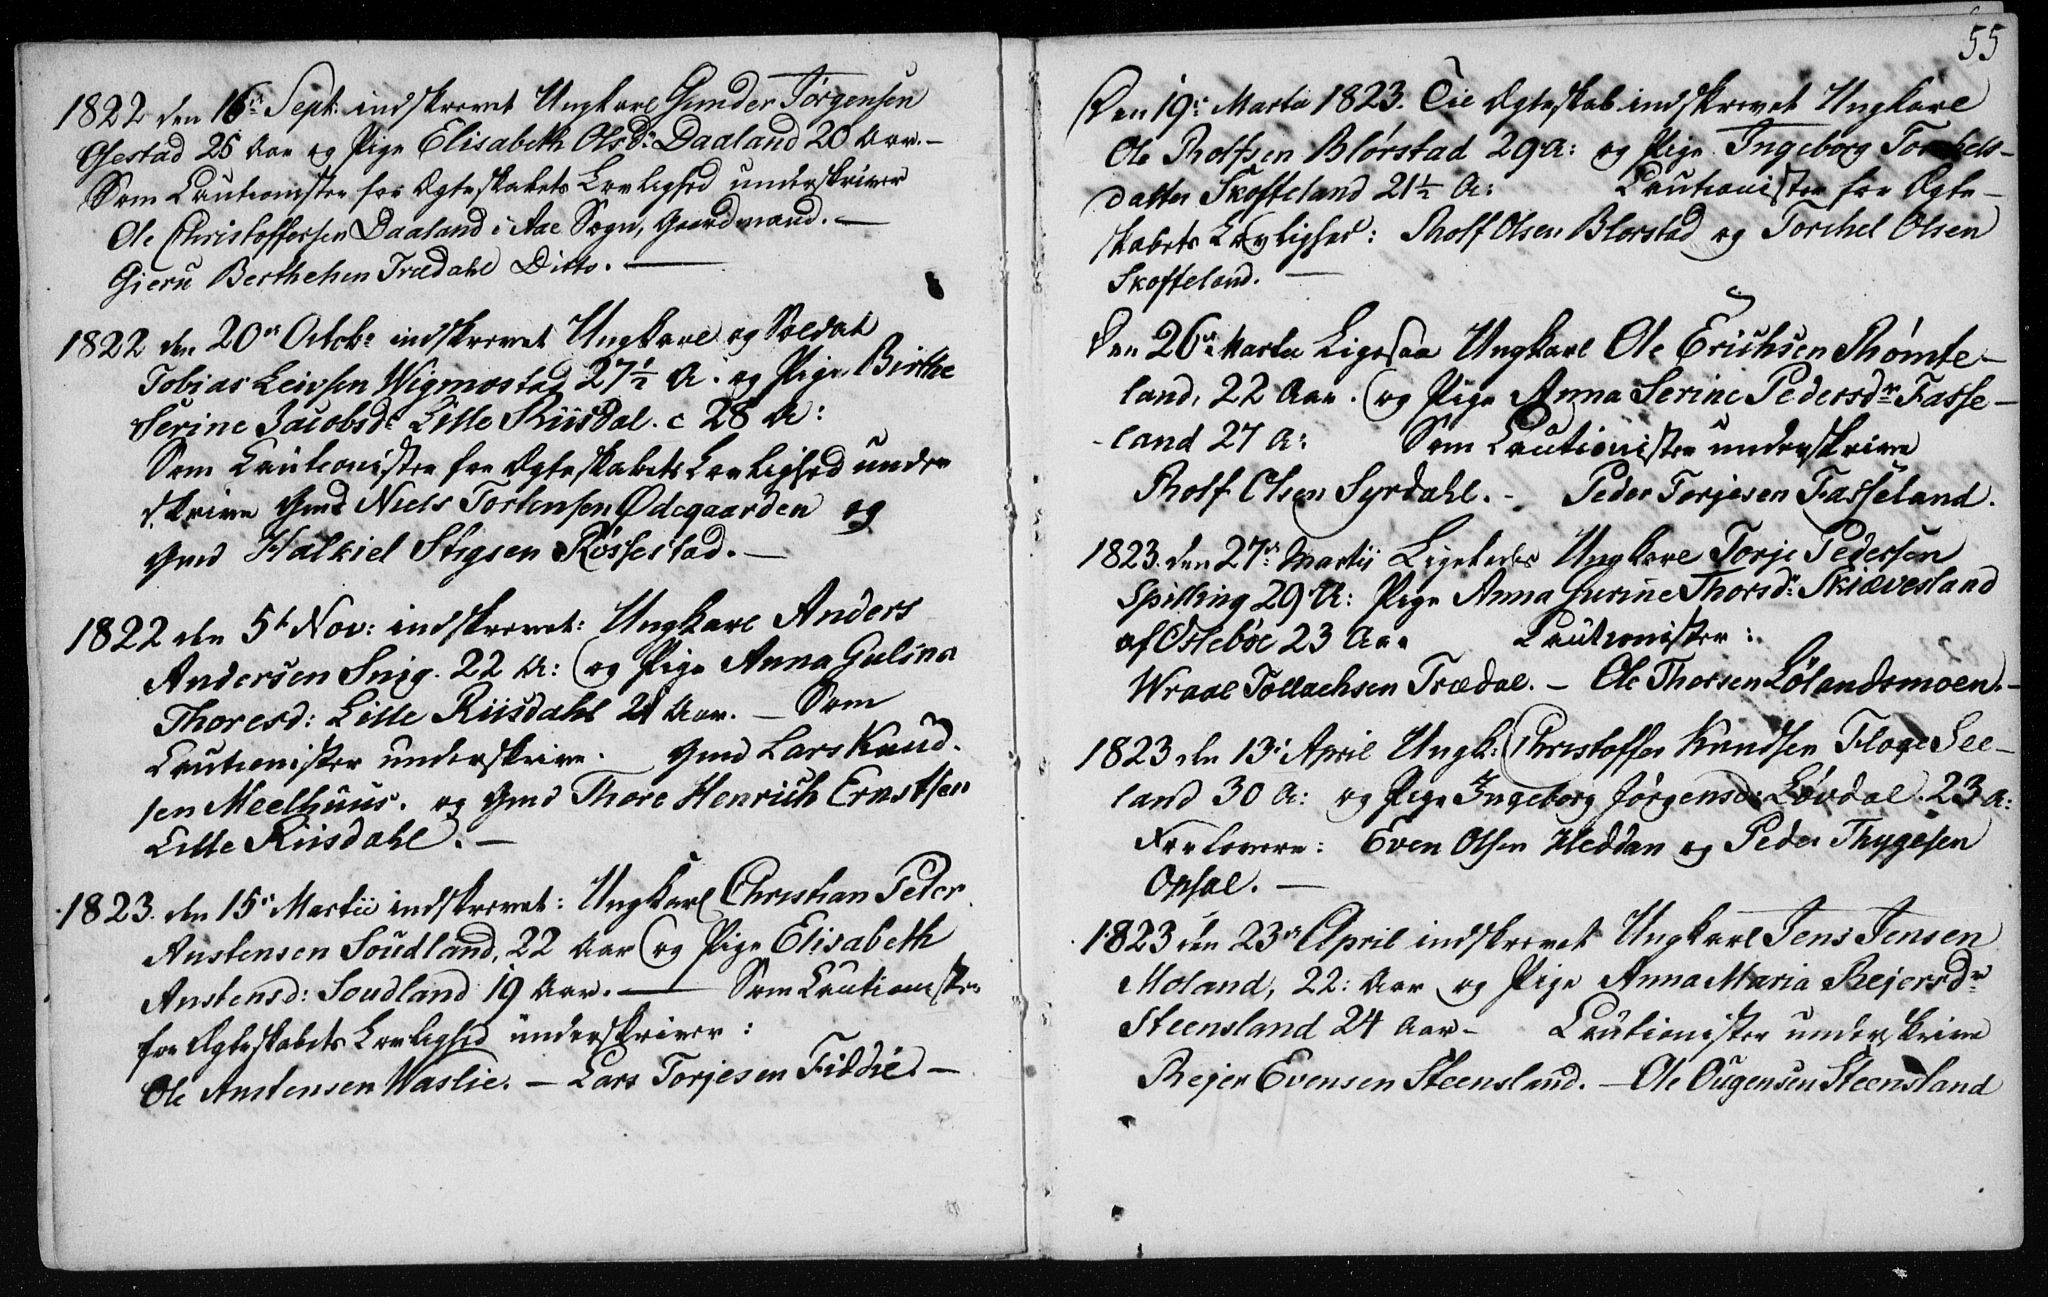 1822 den 16de Sept: indskrevet Ungkarl Gunder Jørgensen
Osestad 25 Aar og Pige Elisabeth Olsd: Daaland 20 Aar. –
Som Cautionister for Ægteskabets Lovlighed underskriver
Ole Christoffersen Daaland i Aae Sogn, Gaardmand. –
Gieru Berthelsen Trædahl Ditto. –
1822 den 20de Octobr: indskrevet Ungkarl og Soldat
Tobias Leivsen Wigmostad 27½ A. og Pige Birthe
Serine Jacobsdr Lille Riisdal. c 28 A:
Som Cautionister for Ægteskabets Lovlighed under
skrive Gmd Niels Torkensen Ødegaarden og
Gmd Halkiel Stigsen Røssestad. –
1822 den 5t Nov: indskrevet: Ungkarl Anders
Andersen Snig. 22 A: og Pige Anna Gulina
Thoresd: Lille Riisdahl 21 Aar. – Som
Cautionister underskrive. Gmd Lars Knud-
sen Meelhuus. og Gmd Thore Henrich Ernstsen
Lille Riisdahl. –
1823. den 15de Martii indskrevet: Ungkarl Christian Peder
Anstensen Soudland, 22 Aar og Pige Elisabeth
Anstensd: Soudland 19 Aar. – Som Cautionister
for Ægteskabets Lovlighed underskriver:
Ole Anstensen Waslie. – Lars Torjesen Fiddie. –
55
Den 19de Marts 1823. Til Ægteskab indskrevet Ungkarl
Ole Rolfsen Blørstad 29 A: og Pige Ingeborg Torkels-
datter Skoffeland 21½ A: Cautionister for Ægte-
skabets Lovlighed: Rolf Olsen Blørstad og Torchel Olsen
Skoffeland. –
Den 26de Marts Ligesaa Ungkarl Ole Erichsen Rømte-
land, 22 Aar. og Pige Anna Serine Pedersdr Fasse-
land 27 A: Som Cautionister underskrive
Rolf Olsen Syrdahl. – Peder Torjesen Fasseland.
1823. den 27de Martii Ligeledes Ungkarl Torje Pedersen
Spilling 29 A: Pige Anna Gurine Thorsdr Skiævesland
af Ostebøe 23 Aar Cautionister:
Wraal Tollachsen Trædal. – Ole Thorsen Lølandsmoen. –
1823 den 13de April Ungk: Christoffer Knudsen Floge See-
land 30 A: og Pige Ingeborg Jørgensd: Løvdal. 23 A:
Forlovere: Even Olsen Heddan og Peder Thygesen
Opsal. –
1823 den 23de April indskrevet Ungkarl Jens Jensen
Moland, 22: Aar og Pige Anna Maria Rejersdr
Steensland 24 Aar – Cautionister underskrive
Rejer Evensen Steensland. – Ole Ougensen Steensland